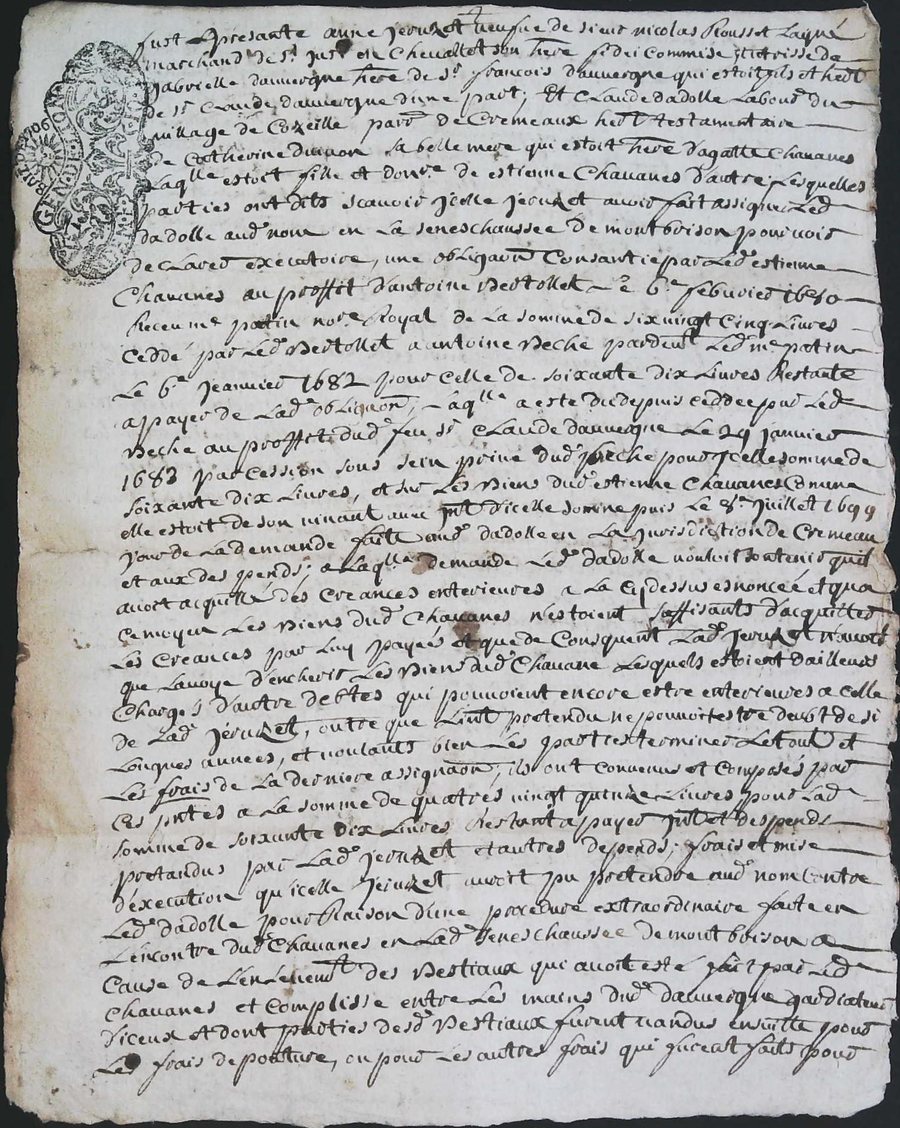 fust presante anne Jeruzet veufue de sieur nicolas Rousset Laigné
marchand de St Just en Chevallet son here fidei Commise
Gabrielle dauvergne here de Sr françois dauvergne qui estoit fils et hert
de Sr Claude dauvergne d'une part; Et Claude dadolle Labour du
village de Cozeille parr de Cremeaux hert testamentaire
de Catherine sa belle mere qui estoit here d'agatte Chavanes
Laqlle estoit fille et donre de estienne Chavanes d'autre; Lesquelles
parties ont dits scavoir Jcelle Jeruzet avoir fait assigner Led
dadolle aud nom en La seneschaussee de montbrison pour voir
declarer executoire, une obligaon Consantie par Led estienne
Chavanes au proffit d'antoine Bertollet Le 6e febvrier 1650
Receu me patin nore Royal de La somme de six vingt Cinq Livres
Ceddé par Led Bertollet a antoine Beche pardevt Led me patin
Le 6e Jeanvier 1682 pour Celle de soixante dix Livres Restante
a payer de Lad obligaon, Laqlle a esté du depuis Ceddee par Led
Beche au proffit dud feu Sr Claude dauvergne Le 29 Janvier
1683 par Cession sous sein privé dud Beche pour Jcelle somme de
soixante dix Livres, et sur Les Biens dud estienne Chavanes Comme
elle estoit de son vivant avec Jnt d'icelle somme puis Le 8e Juillet 1699
Jour de La demande faite aud dadolle en La Jurisdiction de Cremeau
et aux despends; a Laqlle demande Led dadolle vouloit soutenir quil
avoit acquitté des Creances enterieures a La Cydessus esnoncéé et qua
Ce moyen Les Biens dud Chavanes n'estoient suffisants d'acquitter
Les Creances par Luy payéés et que de Consquent Lad Jeruzet n'avoit
que La voye d'encherir Les Biens dud Chavane Lesquels estoient dailleurs
Chargés d'autre debtes qui pouvoient encore estre enterieures a Celle
de Lad Jeruzet, outre que Lint pretendu ne pouvoit estre deubt de si
Longues années, et voulants bien Les parties terminer Le tout et
Les frais de La derniere assignaon, ils ont Convenus et Composés par
Ces pntes a La somme de quatres vingt quinze Livres pour Lad
somme de soixante dix Livres Restant a payer Jnt et despends
pretandus par Lad Jeruzet et autres depends; frais et mise
d'éxecution qu'icelle Jeruzet auroit pu pretendre aud nom Contre
Led dadolle pour Raison d'une procedure extraordinaire faite en
Lencontre dud Chavanes en Lad seneschaussee de montbrison a
Cause de L'enlevemt des Bestiaux qui avoit esté fait par Led
Chavanes et Complisse entre Les mains dud dauvergne gardiateur
d'iceux et dont parties desd Bestiaux furent vandus ensuitte pour
Les frais de pouture, ou pour Les autres frais qui furent faits pour
GEN DE LION